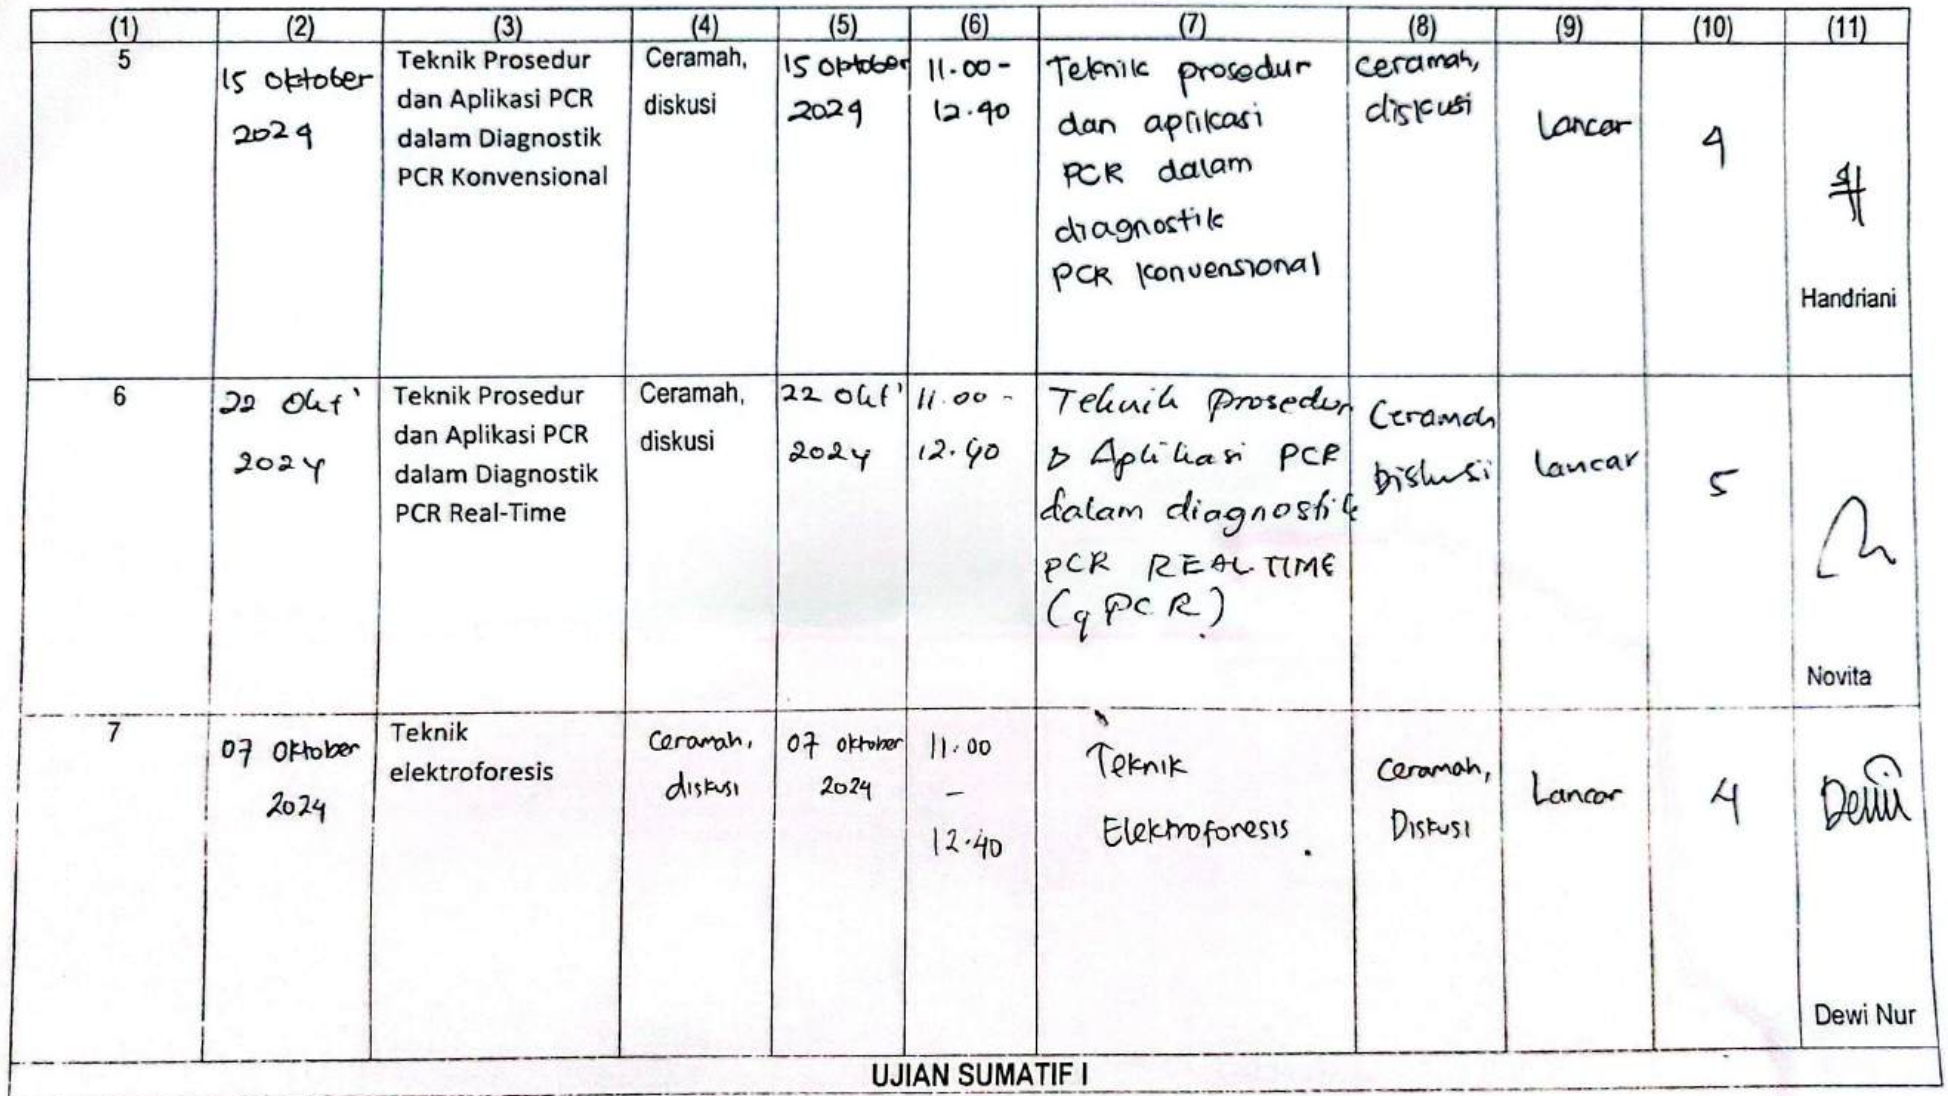 (1) (2) (3) (4) (5) (6) (7) (8) (9) (10) (11)
5
15 Oktober
2024
Teknik Prosedur
dan Aplikasi PCR
dalam Diagnostik
PCR Konvensional
Ceramah,
diskusi
15 Oktober
2024
11.00 -
12.40
Teknik prosedur
dan aplikasi
PCR dalam
diagnostik
PCR Konvensional
Ceramah,
diskusi
Lancar
4
Handriani
6
22 Okt'
2024
Teknik Prosedur
dan Aplikasi PCR
dalam Diagnostik
PCR Real-Time
Ceramah,
diskusi
22 Okt'
2024
11.00 -
12.40
Teknik Prosedur
Aplikasi PCR
dalam diagnostik
PCR REAL TIME
(qPCR)
Ceramah
Diskusi
Lancar
5
Novita
7
07 Oktober
2024
Teknik
elektroforesis
Ceramah,
diskusi
07 Oktober
2024
11.00
-
12.40
Teknik
Elektroforesis.
Ceramah,
Diskusi
Lancar
4
Dewi Nur
UJIAN SUMATIF I